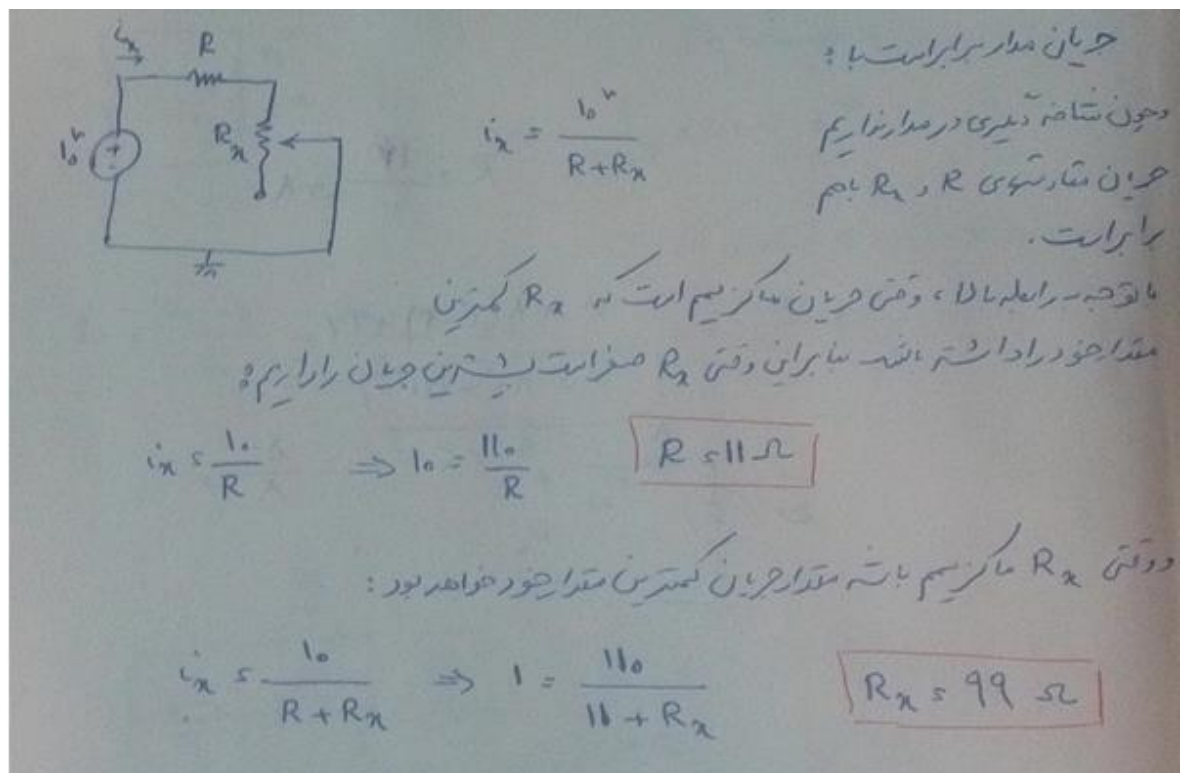 جریان مدار برابراست با :
i_x = 10^v / R+R_x
وچون شاخه دیگری در مدار نداریم
جریان مقاومتهای R و R_x باهم
برابراست.
i_x → R
10^v
R_x
باتوجه به رابطه بالا ، وقتی جریان ماکزیمم است که R_x کمترین
مقدار خود را داشته باشد بنابراین وقتی R_x صفر است بیشترین جریان را داریم :
i_x = 10 / R ⇒ 10 = 110 / R R = 11 Ω
و وقتی R_x ماکزیمم باشد مقدار جریان کمترین مقدار خود خواهد بود :
i_x = 10 / R + R_x ⇒ 1 = 110 / 11 + R_x R_x = 99 Ω